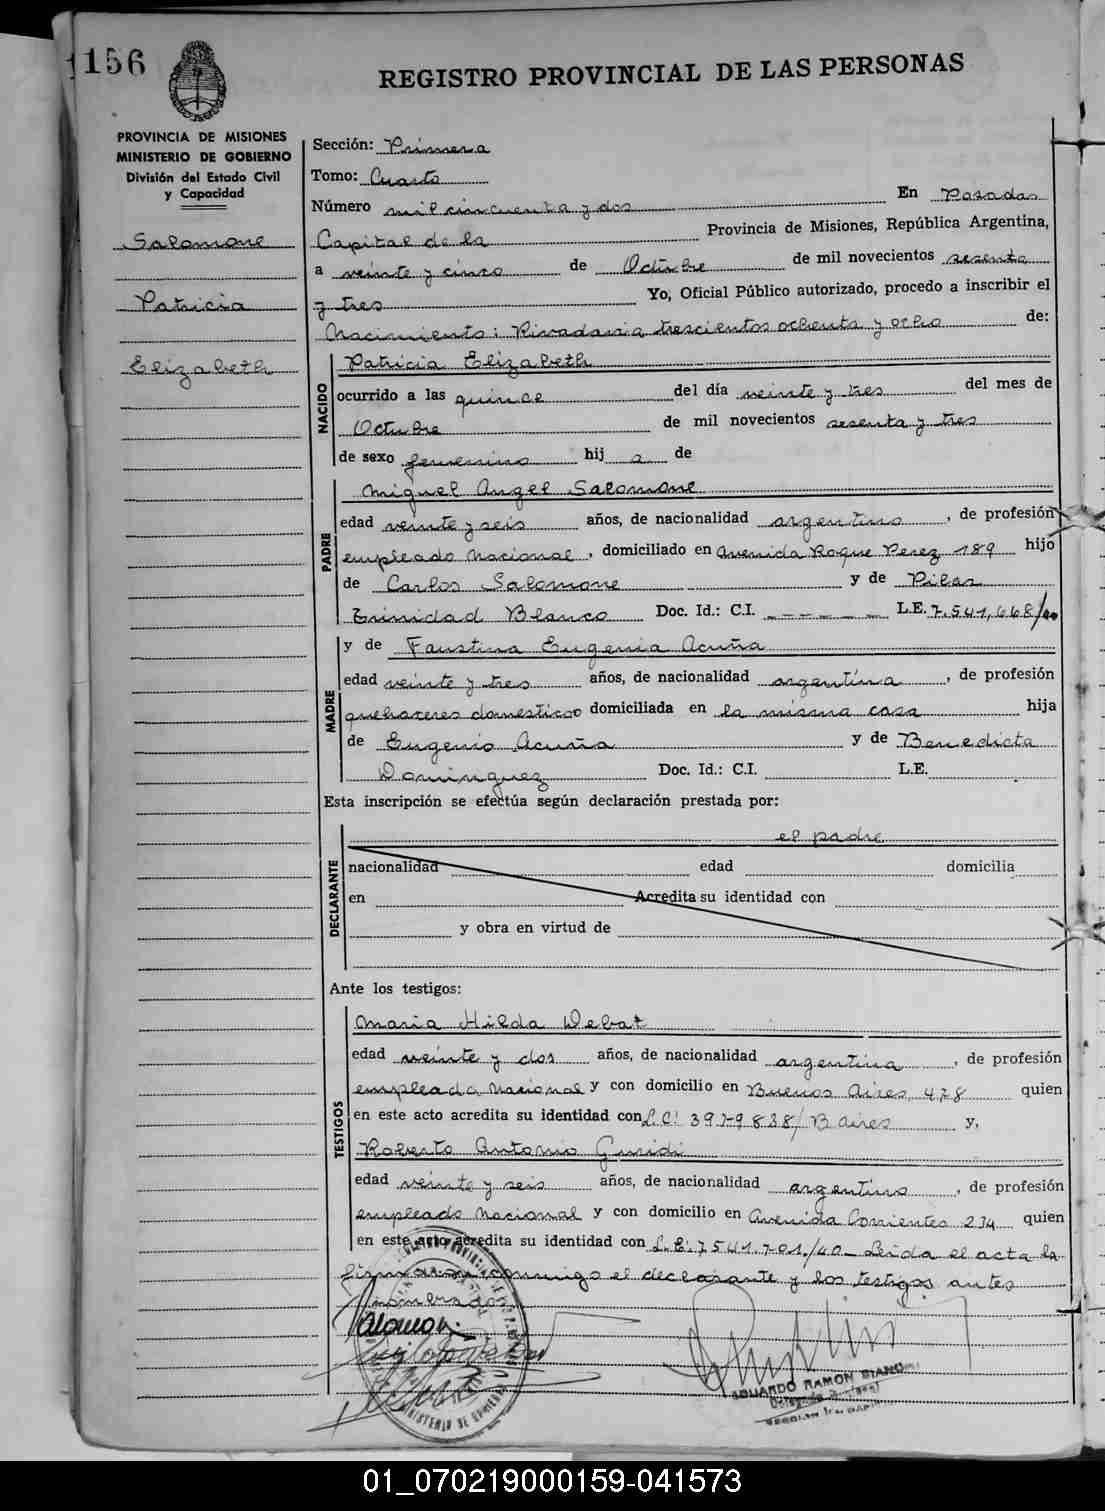 1156
REGISTRO PROVINCIAL DE LAS PERSONAS
PROVINCIA DE MISIONES
MINISTERIO DE GOBIERNO
División del Estado Civil
y Capacidad
Salomone
Patricia
Elizabeth
Sección: Primera
Tomo: Cuarto
Número mil cincuenta y dos En Posadas
Capital de la Provincia de Misiones, República Argentina,
a veinte y cinco de Octubre de mil novecientos sesenta
y tres Yo, Oficial Público autorizado, procedo a inscribir el
Nacimiento: Rivadavia trescientos ochenta y ocho de:
NACIDO
Patricia Elizabeth
ocurrido a las quince del día veinte y tres del mes de
Octubre de mil novecientos sesenta y tres
de sexo femenino hij a de
PADRE
Miguel Angel Salomone
edad veinte y seis años, de nacionalidad argentino, de profesión
empleado nacional, domiciliado en Avenida Roque Perez 189 hijo
de Carlos Salomone y de Pilar
Trinidad Blanco Doc. Id.: C.I. _ _ _ _ _ L.E. 7.541,668/40
MADRE
y de Faustina Eugenia Acuña
edad veinte y tres años, de nacionalidad argentina, de profesión
quehaceres domesticos domiciliada en la misma casa hija
de Eugenio Acuña y de Benedicta
Dominguez Doc. Id.: C.I. L.E.
Esta inscripción se efectúa según declaración prestada por:
DECLARANTE
el padre
nacionalidad edad domicilia
en Acredita su identidad con
y obra en virtud de
Ante los testigos:
TESTIGOS
Maria Hilda Debat
edad veinte y dos años, de nacionalidad argentina, de profesión
empleada nacional y con domicilio en Buenos Aires 478 quien
en este acto acredita su identidad con L.C. 3979838/B aires y,
Roberto Antonio Guridi
edad veinte y seis años, de nacionalidad argentino, de profesión
empleado nacional y con domicilio en Avenida Corrientes 234 quien
en este acto acredita su identidad con L.E. 7541.701./40_ Leida el acta la
firmaron conmigo el declarante y los testigos antes
nombrados
EDUARDO RAMON
MINISTERIO DE GOBIERNO
01_070219000159-041573